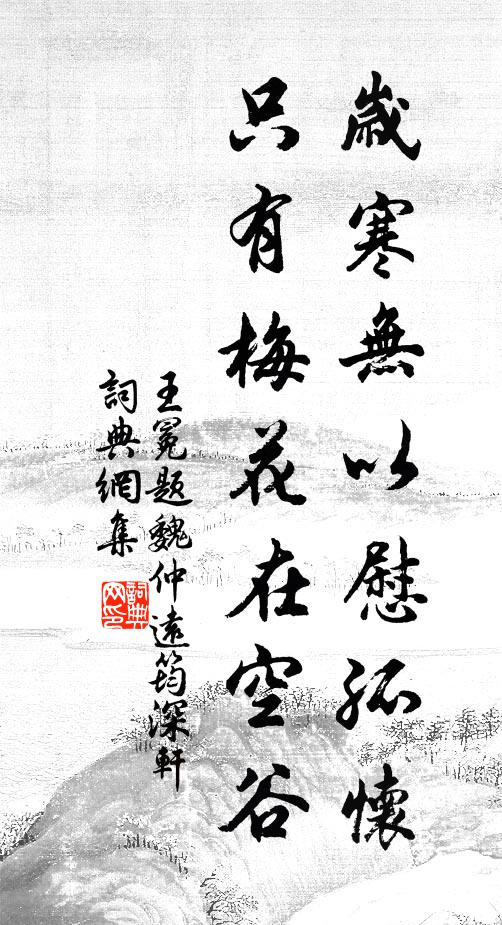 歲寒無以慰孤懷
只有梅花在空谷
王冕題魏仲遠筠深軒
詞典網集
詞典網印